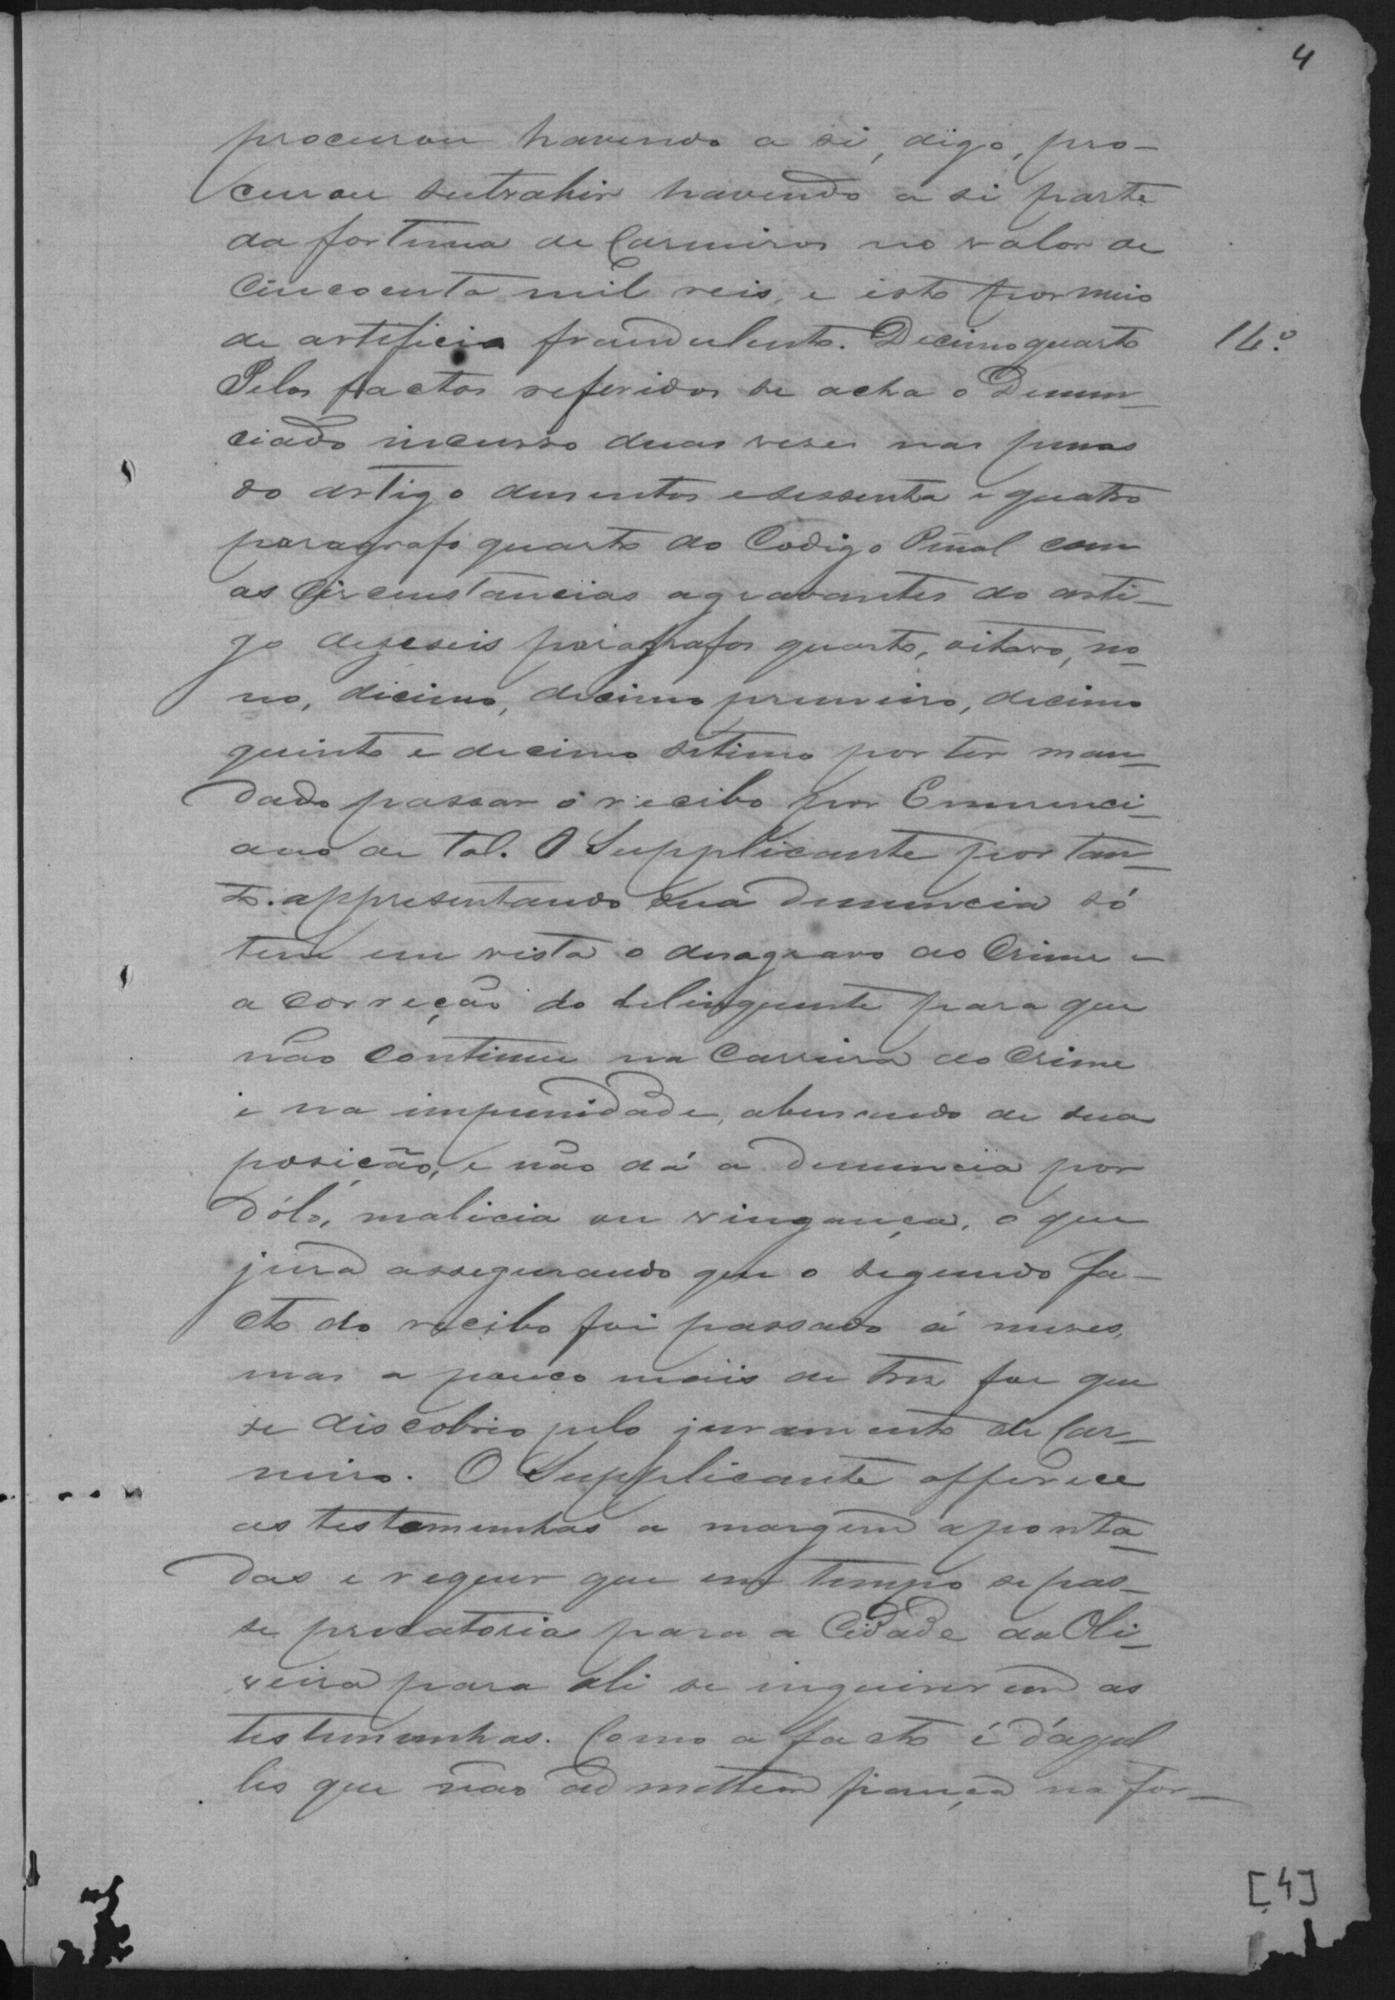 4
procurou havendo a si, digo, pro-
curou subtrahir havendo a si parte
da fortuna de Carneiros no valor de
cincoenta mil reis, e isto por meio
de artificio fraudulento. Decimo quarto
14.º
Pelos factos referidos se acha o Denun-
ciado incurso duas veses nas penas
do artigo dusentos e sessenta e quatro
paragrafo quarto do Codigo Penal com
as circunstancias agravantes do arti-
go deseseis paragrafos quarto, oitavo, no-
no, decimo, decimo primeiro, decimo
quinto e decimo setimo por ter man-
dado passar o recibo por Emerenci-
ano de tal. O Supplicante portan-
to. appresentando sua denuncia só
tem em vista o desagravo do Crime e
a correção do delinquente para que
não continue na Carreira do Crime
e na impunidade, abusando de sua
posição, e não dá a denuncia por
dólo, malicia ou vingança, o que
jura assegurando que o segundo fa-
cto do recibo foi passado á meses,
mas a pouco mais de tres foi que
se discobrio pelo juramento de Car-
neiro. O Supplicante offerece
as testemunhas a margem aponta-
das e requer que em tempo se pas-
se precatoria para a Cidade da Oli-
veira para ali se inquirirem as
testemunhas. Como o facto é d'aquel
les que não admittem fiança na for-
[4]